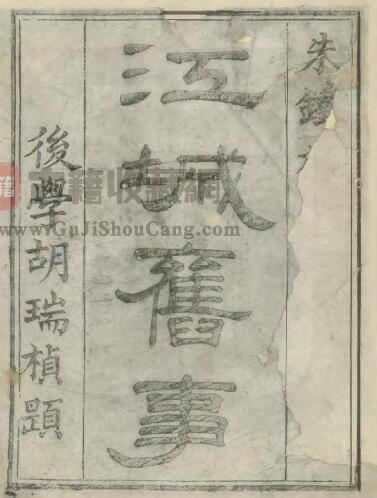 朱
江城舊事
後學胡瑞楨題
籍收藏網
www.GuJiShouCang.com